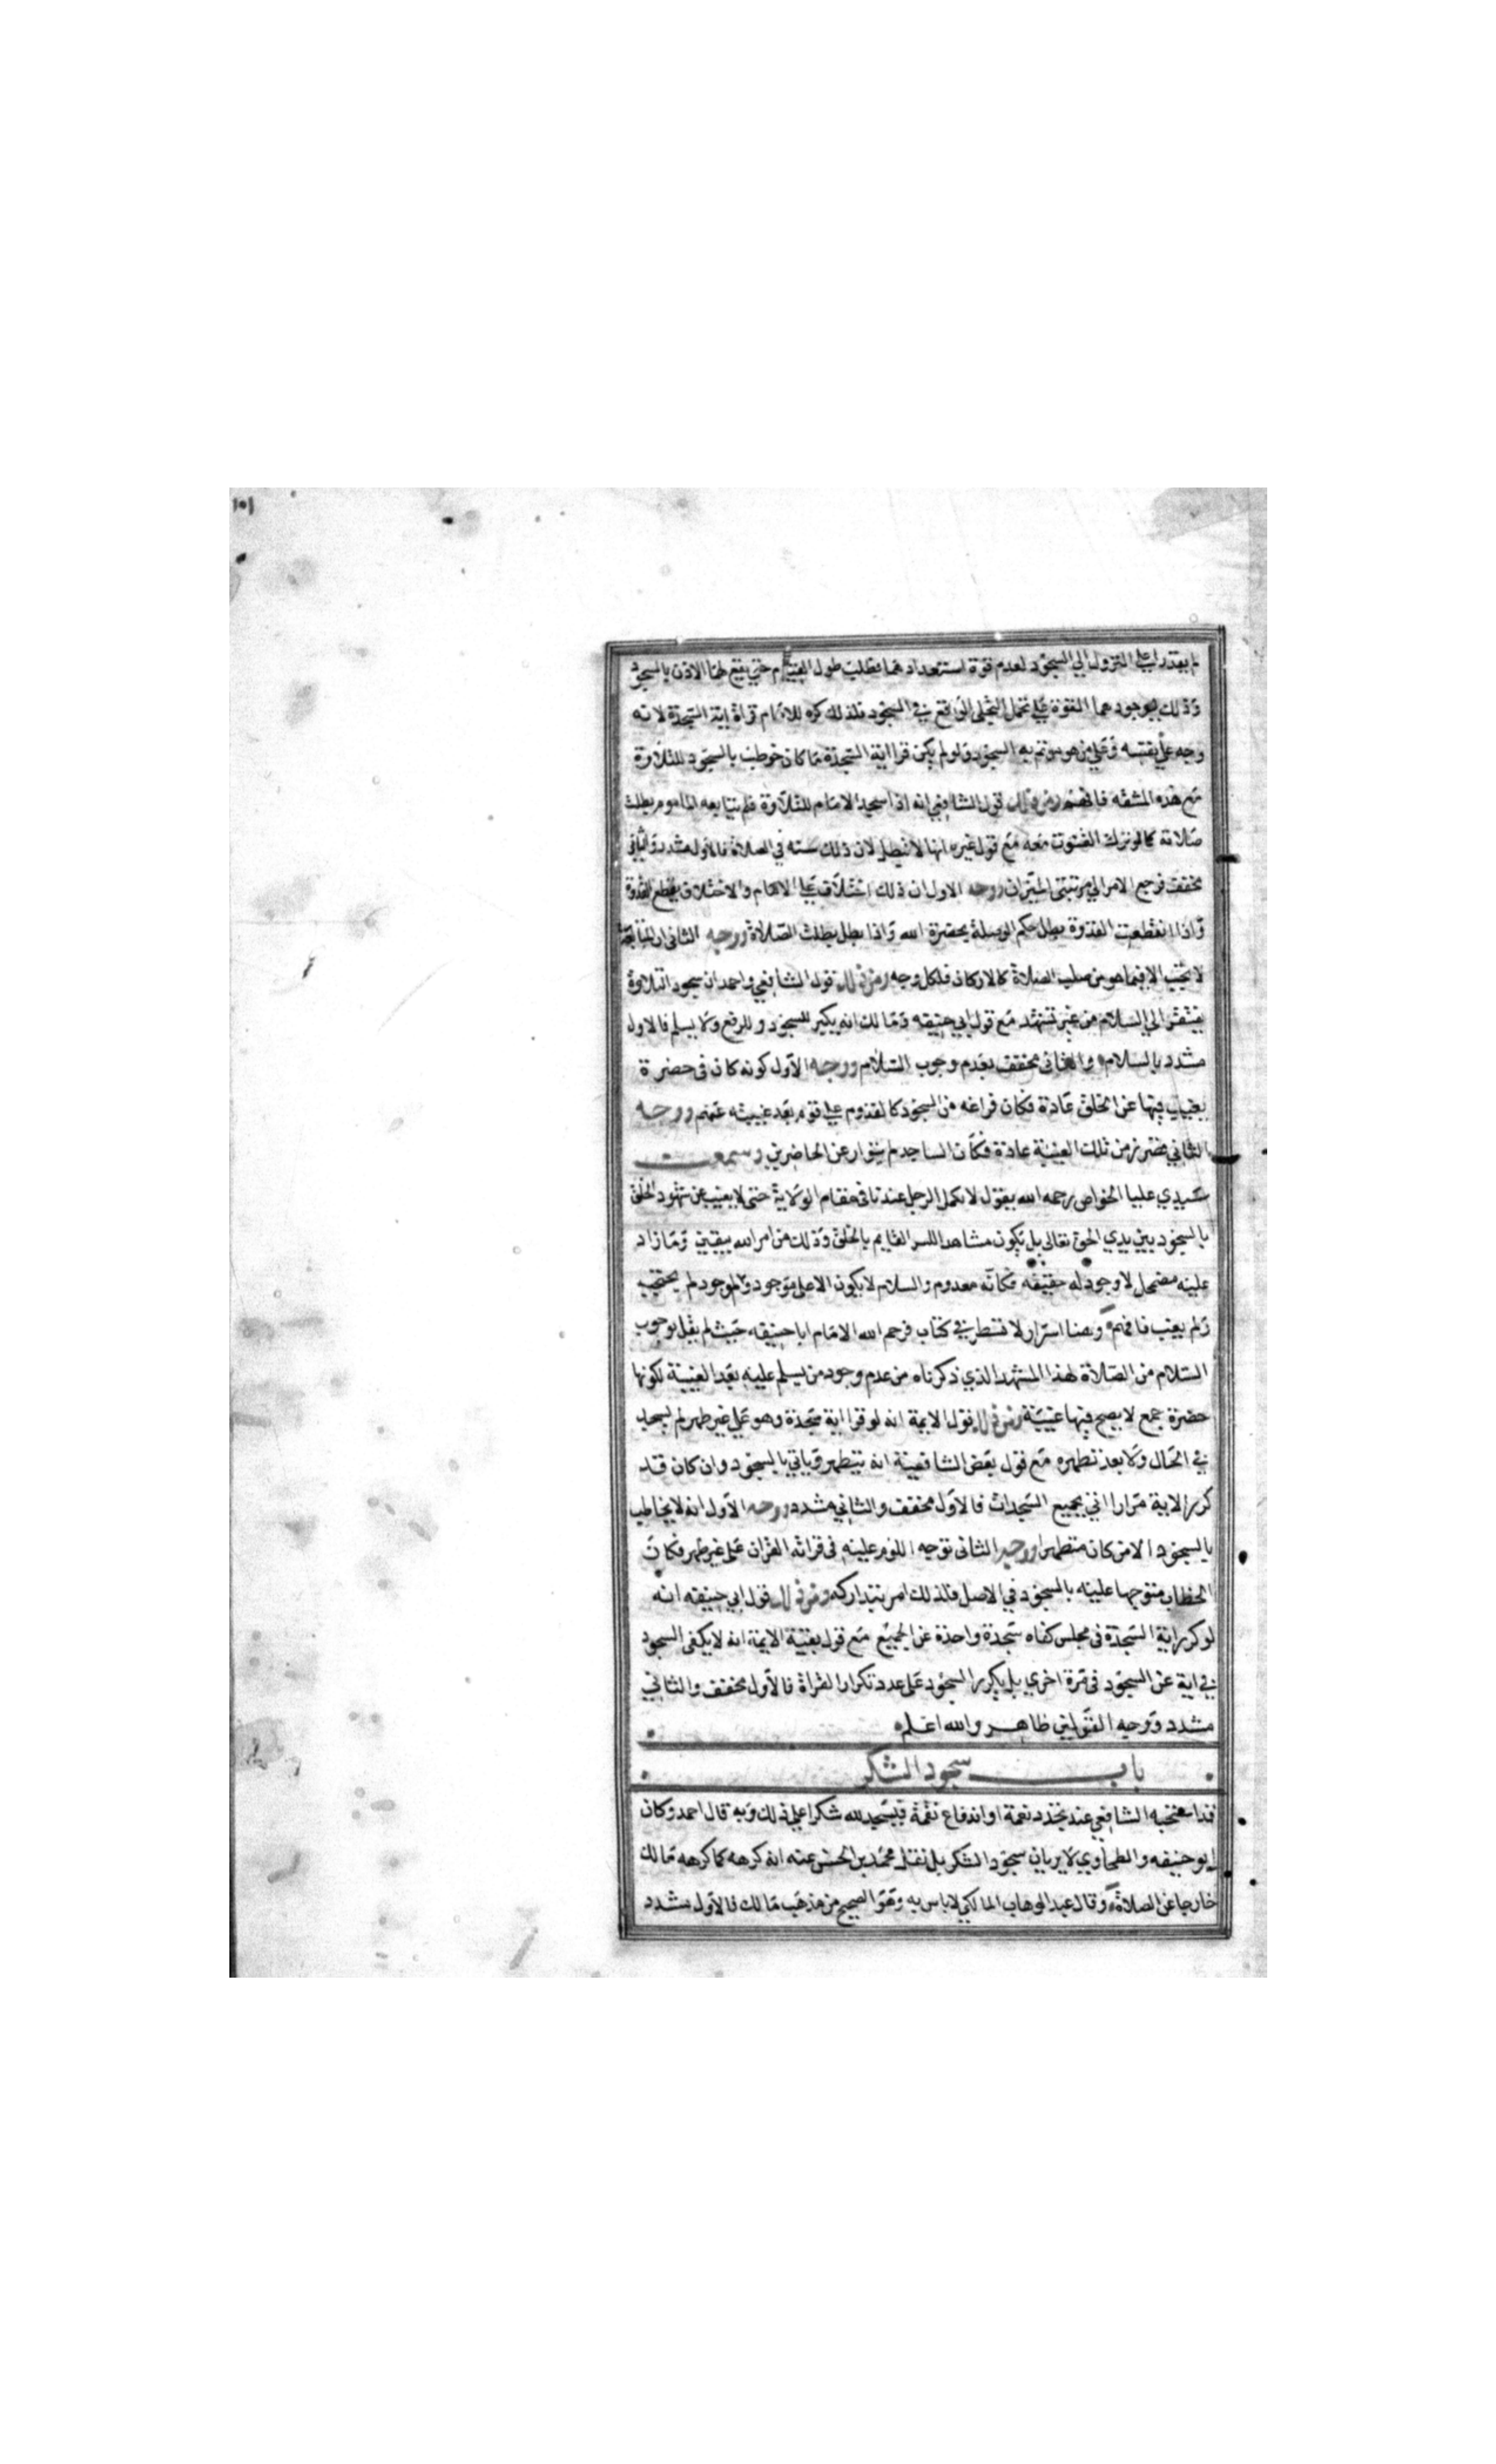 ١٥١
لم يقدرا على النزول الى السجود لعدم قوة استعدادهما فطلب طول القيام حتى يقع لهما الاذن بالسجود
وذلك لوجودهما القوة على تحمل التجلى الذى يقع في السجود فلذلك كره للامام قراة اية السجدة لانه
وجه على نفسه وعلى من هو موتم به السجود ولو لم يكن قرا اية السجدة ما كان خوطب بالسجود للتلاوة
مع هذه المشقه فافهم ومن ذلك قول الشافعي انه اذا سجد الامام للتلاوة فلم يتابعه الماموم بطلت
صلاته كما لو ترك القنوت معه مع قول غيره انها لا تبطل لان ذلك سنه في الصلاة فالاول مشدد والثاني
مخفف فرجع الامر الى مرتبتى الميزان ووجه الاول ان ذلك اختلاف على الامام والاختلاف يقطع القدوة
واذا انقطعت القدوة بطل حكم الوصلة بحضرة الله واذا بطل بطلت الصلاة ووجه الثاني ان المتابعة
لا تجب الا فيما هو من صلب الصلاة كالاركان فلكل وجه ومن ذلك قول الشافعي واحمد ان سجود التلاوة
يفتقر الى السلام من غير تشهد مع قول ابي حنيفه ومالك انه يكبر للسجود وللرفع ولا يسلم فالاول
مشدد بالسلام والثاني مخفف بعدم وجوب السلام ووجه الاول كونه كان فى حضرة
يغيب فيها عن الخلق عادة فكان فراغه من السجود كالقدوم على قوم بعد غيبته عنهم ووجه
الثاني من تلك الغيبة عادة فكان الساجد لم يتوار عن الحاضرين وسمعت
سيدي عليا الخواص رحمه الله يقول لا يكمل الرجل عندنا فى مقام الولاية حتى لا يغيب عن شهود الخلق
بالسجود بين يدي الحق تعالى بل يكون مشاهدا للسر القايم بالخلق وذلك من امر الله بيقين وما زاد
عليه مضمحل لا وجود له حقيقه فكانه معدوم والسلام لا يكون الا على موجود والموجود لم يحتجب
ولم يغيب فافهم وهنا اسرار لا تسطر في كتاب فرحم الله الامام ابا حنيفه حيث لم يقل بوجوب
السلام من الصلاة لهذا المشهد الذي ذكرناه من عدم وجود من يسلم عليه بعد الغيبة لكونها
حضرة جمع لا يصح فيها غيبة ومن ذلك قول الايمة انه لو قرا اية سجدة وهو على غير طهر لم يسجد
في الحال ولا بعد تطهره مع قول بعض الشافعية انه يتطهر وياتي بالسجود وان كان قد
كرر الاية مرارا اتى بجميع السجدات فالاول مخفف والثاني مشدد ووجه الاول انه لا يخاطب
بالسجود الا من كان متطهرا ووجه الثاني توجه اللوم عليه فى قراته القران على غير طهر فكان
الخطاب متوجها عليه بالسجود في الاصل فلذلك امر بتداركه ومن ذلك قول ابي حنيفه انه
لو كرر اية السجدة فى مجلس كفاه سجدة واحدة عن الجميع مع قول بقية الايمة انه لا يكفى السجود
في اية عن السجود فى مرة اخري بل يكرر السجود على عدد تكرار القراة فالاول مخفف والثاني
مشدد ووجه القولين ظاهر والله اعلم
باب سجود الشكر
قد استحبه الشافعي عند تجدد نعمة او اندفاع نقمة فيسجد لله شكرا على ذلك وبه قال احمد وكان
ابو حنيفه والطحاوي لا يريان سجود الشكر بل نقل محمد بن الحسن عنه انه كرهه كما كرهه مالك
خارجا عن الصلاة وقال عبد الوهاب المالكي لا باس به وهو الصحيح من مذهب مالك فالاول مشدد